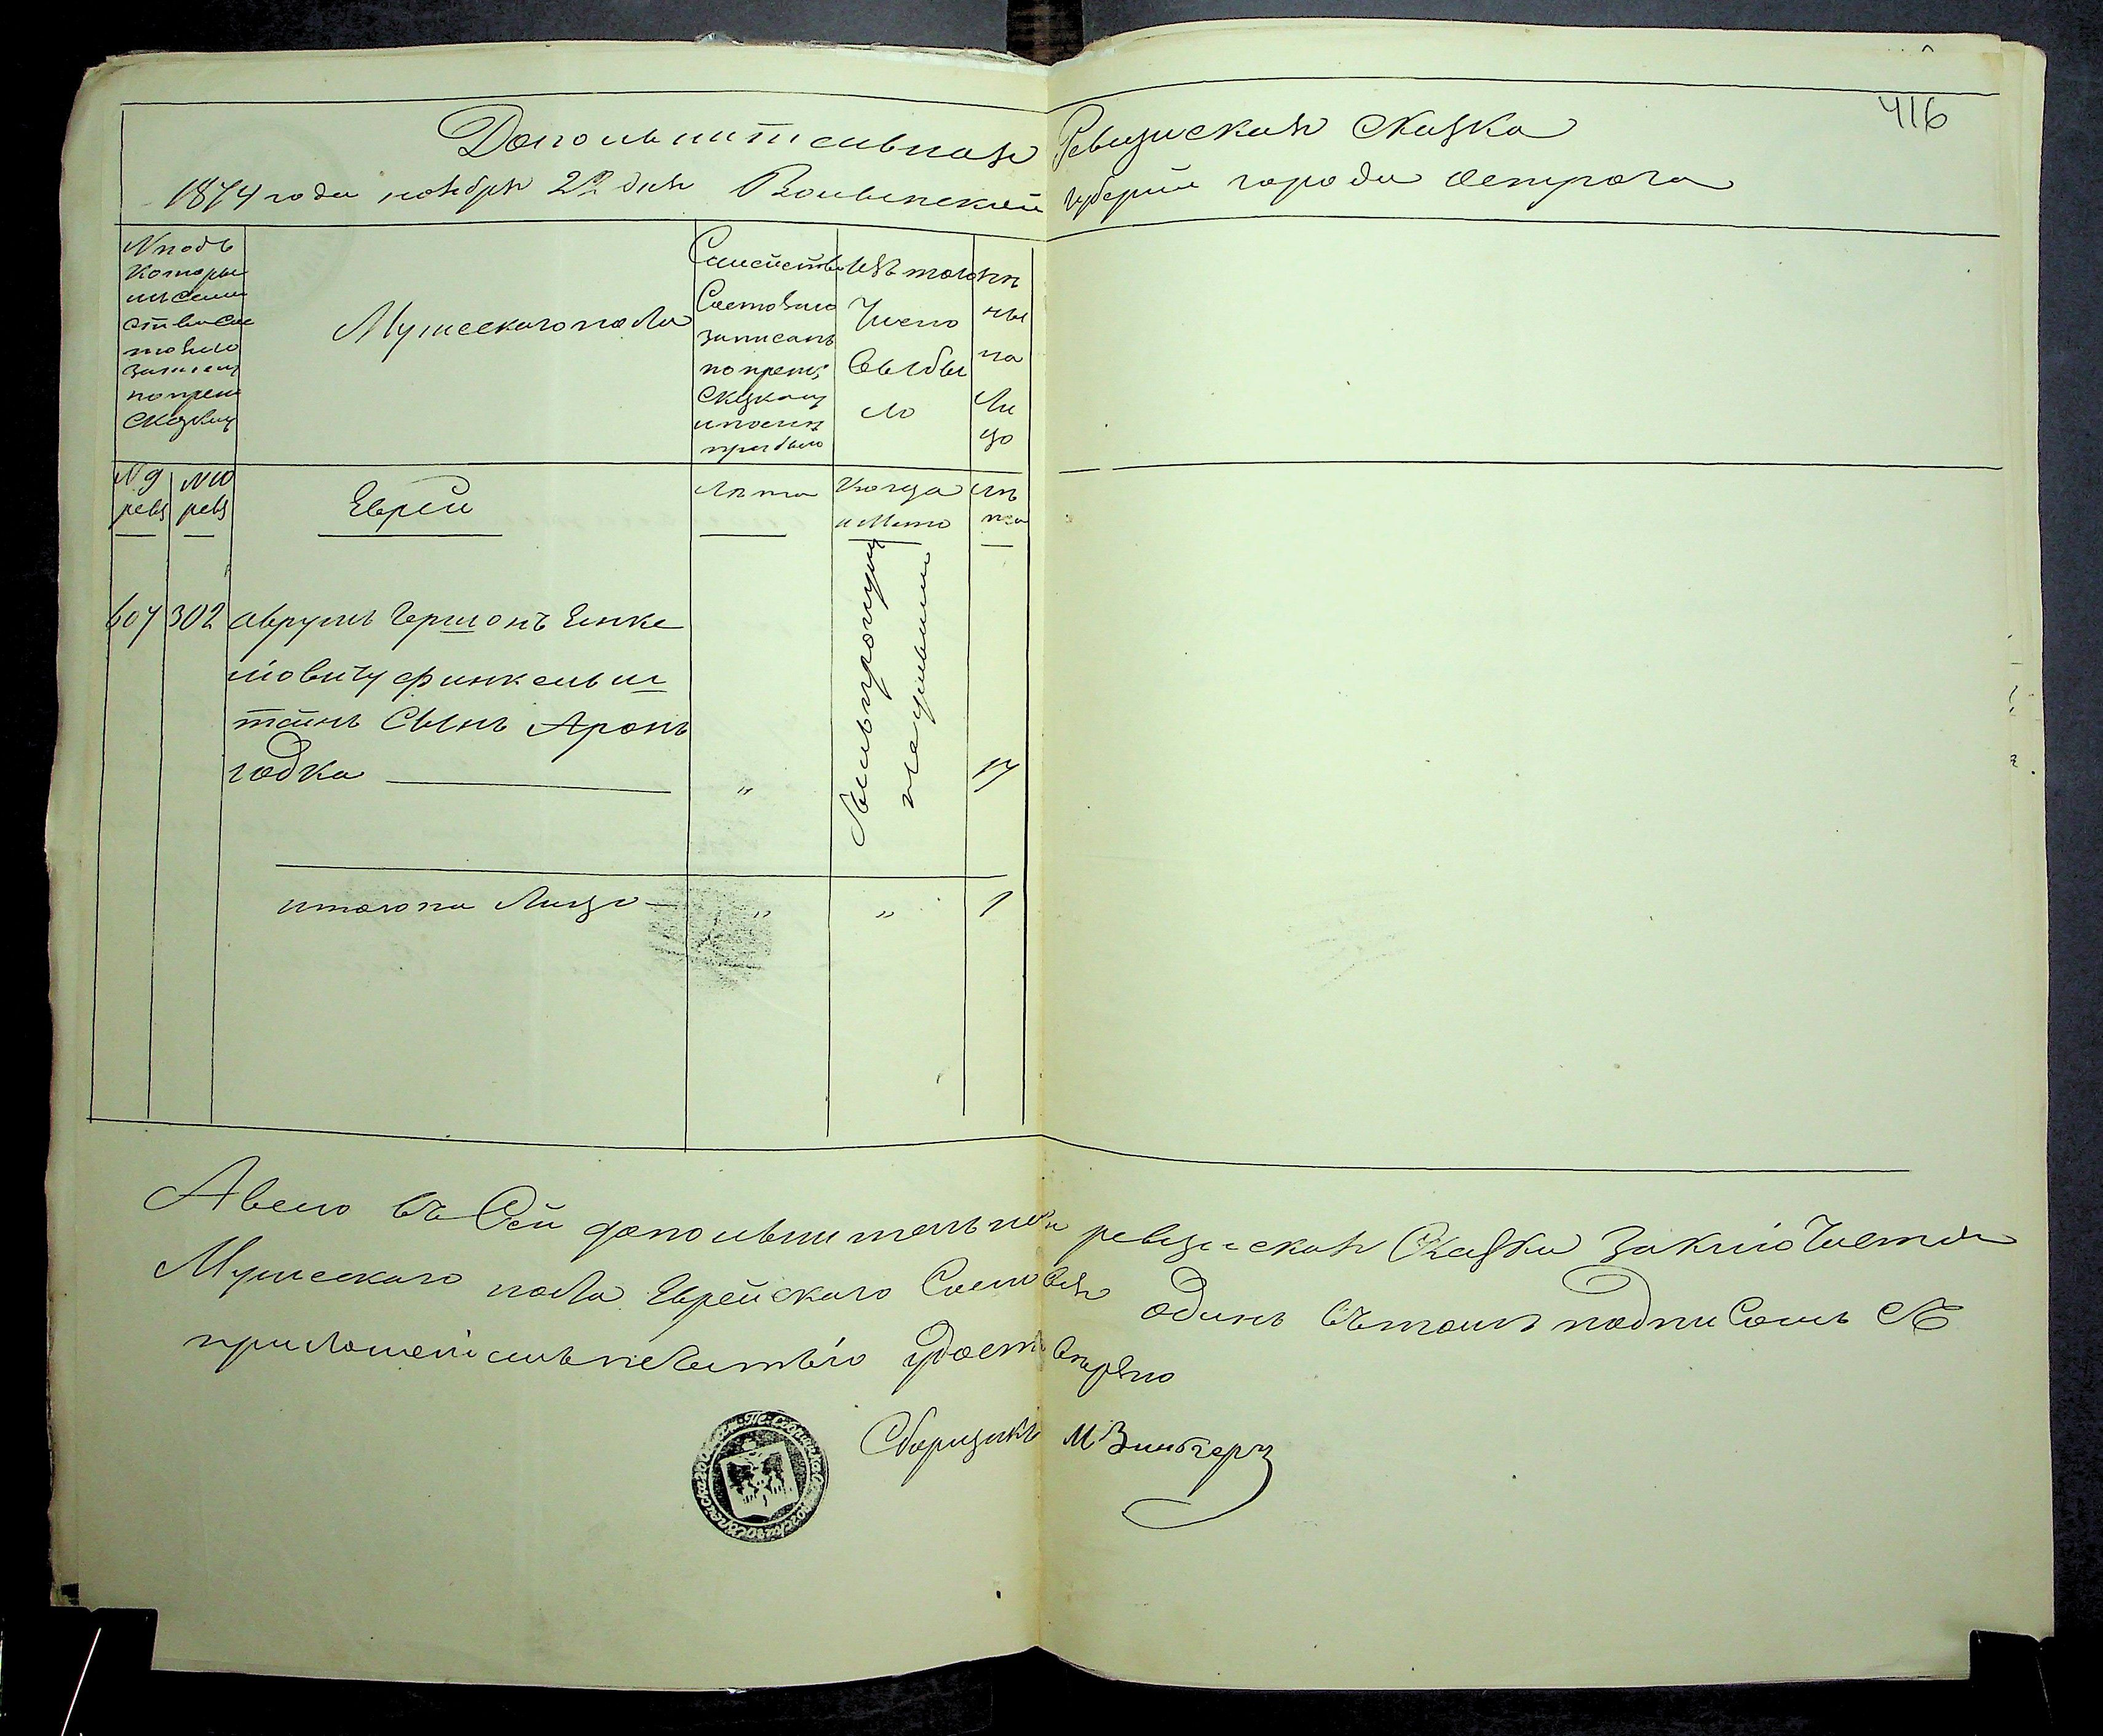 416
Дополнительная Ревизская сказка
1874 года ноября 22 дня Волынской губерии города Острога
N подъ
которы
мъ семи
ство сос
тояло
записан
по преж
сказки
Мужескаго пола
Семейство
состояло
записанъ
по преж
сказкаи
и после
прибыло
Изъ того
число
выбы
ло
нн
ны
на
ли
цо
N 9 ревз
N 10 ревз
Евреи
Лѣта
Когда
и мено
Лѣ
та
607 302 Аврумъ Гершонъ Янке
ліовичу финкельш
тейнъ Сынъ Аронъ
годка — " 17
пропущен
итого на Лицо — " " 1
А всего въ Сей дополнительной ревизскои Сказки заключается
Мужескаго пола Еврейскаго Сословія одинъ въ томъ подписомъ съ
приложеніемъ печатью удостоверяю
Сборщикъ М Зинбгерг